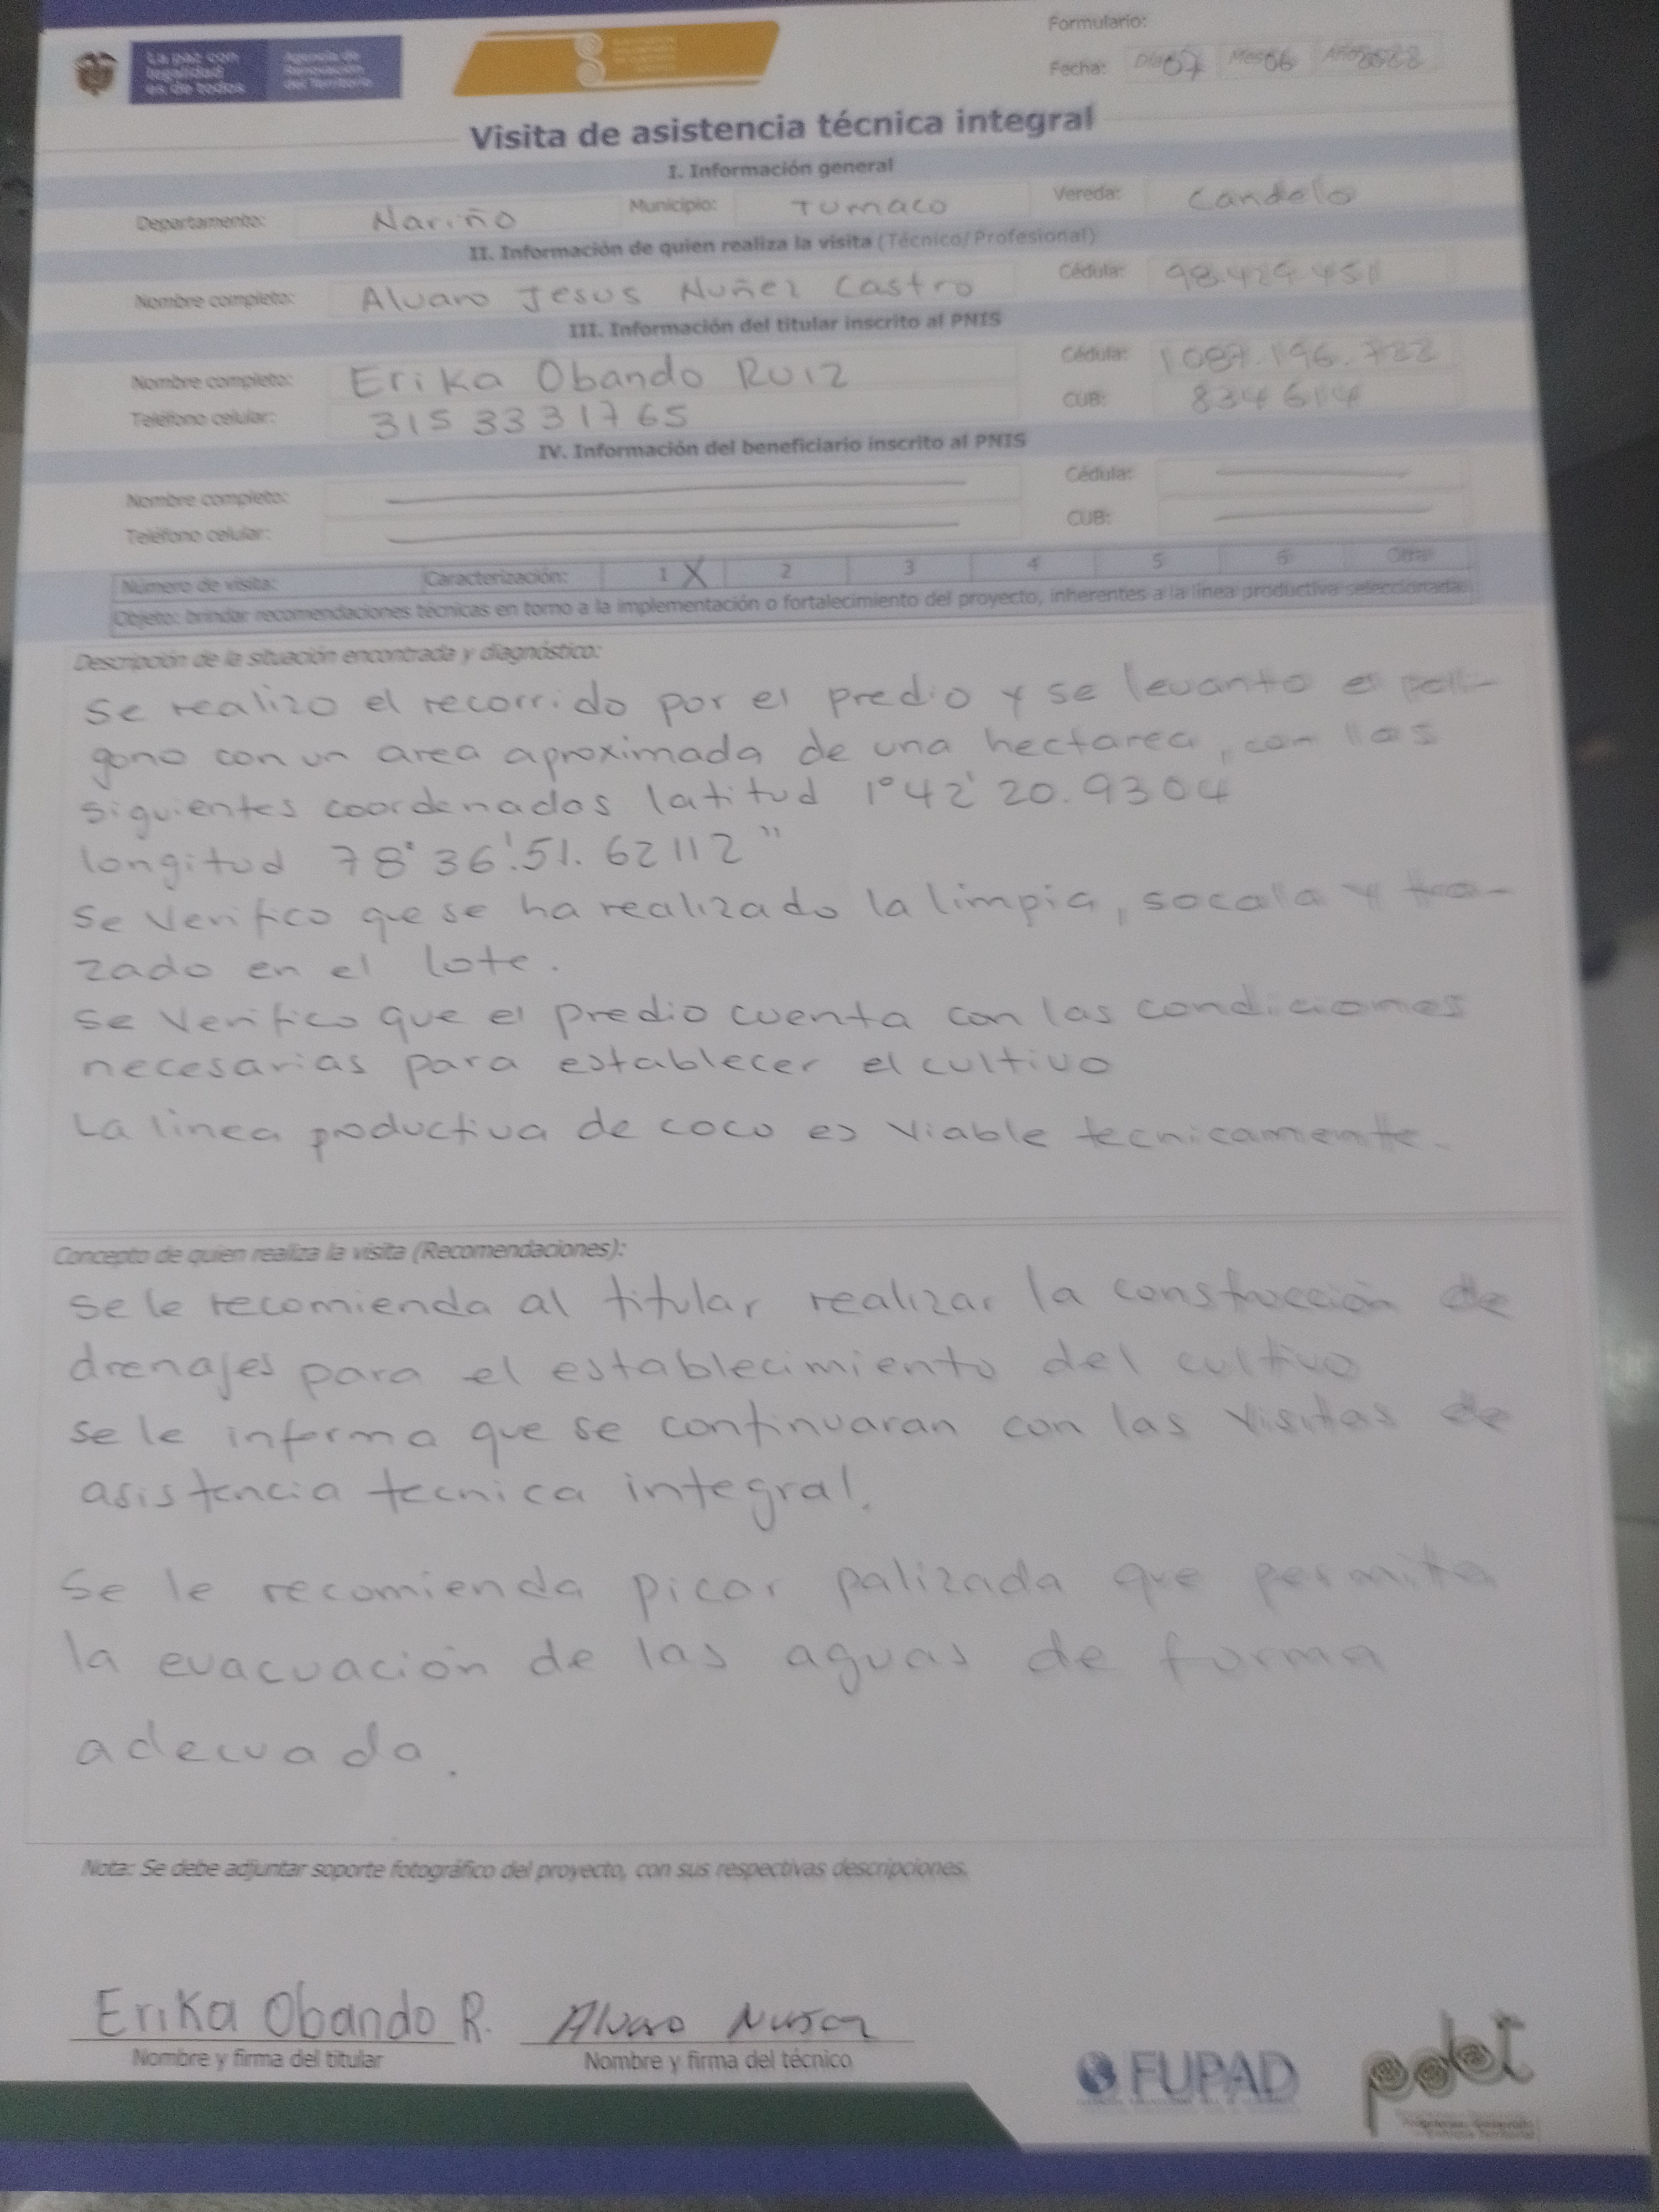 La paz con legalidad es de todos
Agencia de Renovación del Territorio
Formulario:
Fecha: Día 07 Mes 06 Año
Visita de asistencia técnica integral
I. Información general
Departamento: Nariño Municipio: Tumaco Vereda: Candelo
II. Información de quien realiza la visita (Técnico/Profesional)
Nombre completo: Alvaro Jesus Nuñez Castro Cédula: 98.429.451
III. Información del titular inscrito al PNIS
Nombre completo: Erika Obando Ruiz Cédula: 1087.196.722
Teléfono celular: 315 333 1765 CUB:
IV. Información del beneficiario inscrito al PNIS
Nombre completo: Cédula:
Teléfono celular: CUB:
Número de visita: Caracterización: 1 X 2 3 4 5 6 Otra
Objeto: brindar recomendaciones técnicas en torno a la implementación o fortalecimiento del proyecto, inherentes a la línea productiva seleccionada.
Descripción de la situación encontrada y diagnóstico:
se realizo el recorrido por el predio y se levanto el poli-
gono con un area aproximada de una hectarea, con las
siguientes coordenadas latitud 1°42'20.9304
longitud 78°36'.51.62112"
se verifico que se ha realizado la limpia, socala y tra-
zado en el lote.
se verifico que el predio cuenta con las condiciones
necesarias para establecer el cultivo
La linea productiva de coco es viable tecnicamente.
Concepto de quien realiza la visita (Recomendaciones):
se le recomienda al titular realizar la construcción de
drenajes para el establecimiento del cultivo
se le informa que se continuaran con las visitas de
asistencia tecnica integral.
Se le recomienda picar palizada que permita
la evacuación de las aguas de forma
adecuada.
Nota: Se debe adjuntar soporte fotográfico del proyecto, con sus respectivas descripciones.
Erika Obando R. Alvaro Nuñez
Nombre y firma del titular Nombre y firma del técnico
FUPAD pdet